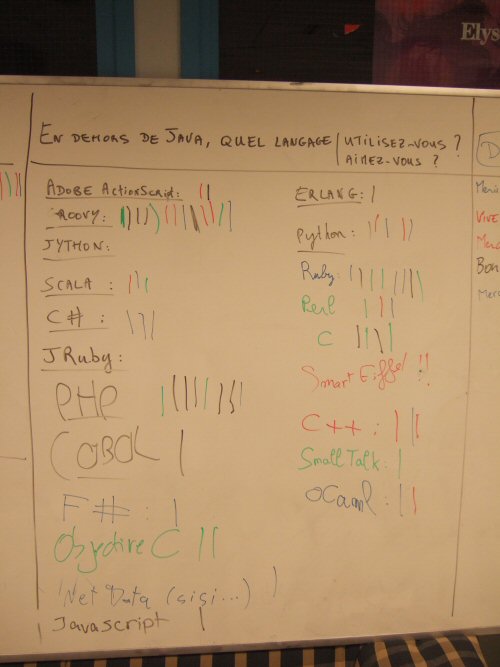 Elys
EN DEHORS DE JAVA, QUEL LANGAGE / UTILISEZ-VOUS ?
AIMEZ-VOUS ?
ADOBE ActionScript:
GROOVY:
JYTHON:
SCALA :
C# :
JRuby:
PHP
COBOL
F# :
Objective C
Net Data (sisi...)
Javascript
ERLANG:
Python:
Ruby:
Perl
C
Smart Eiffel !!
C++ :
SmallTalk:
OCaml :
D
VIVE